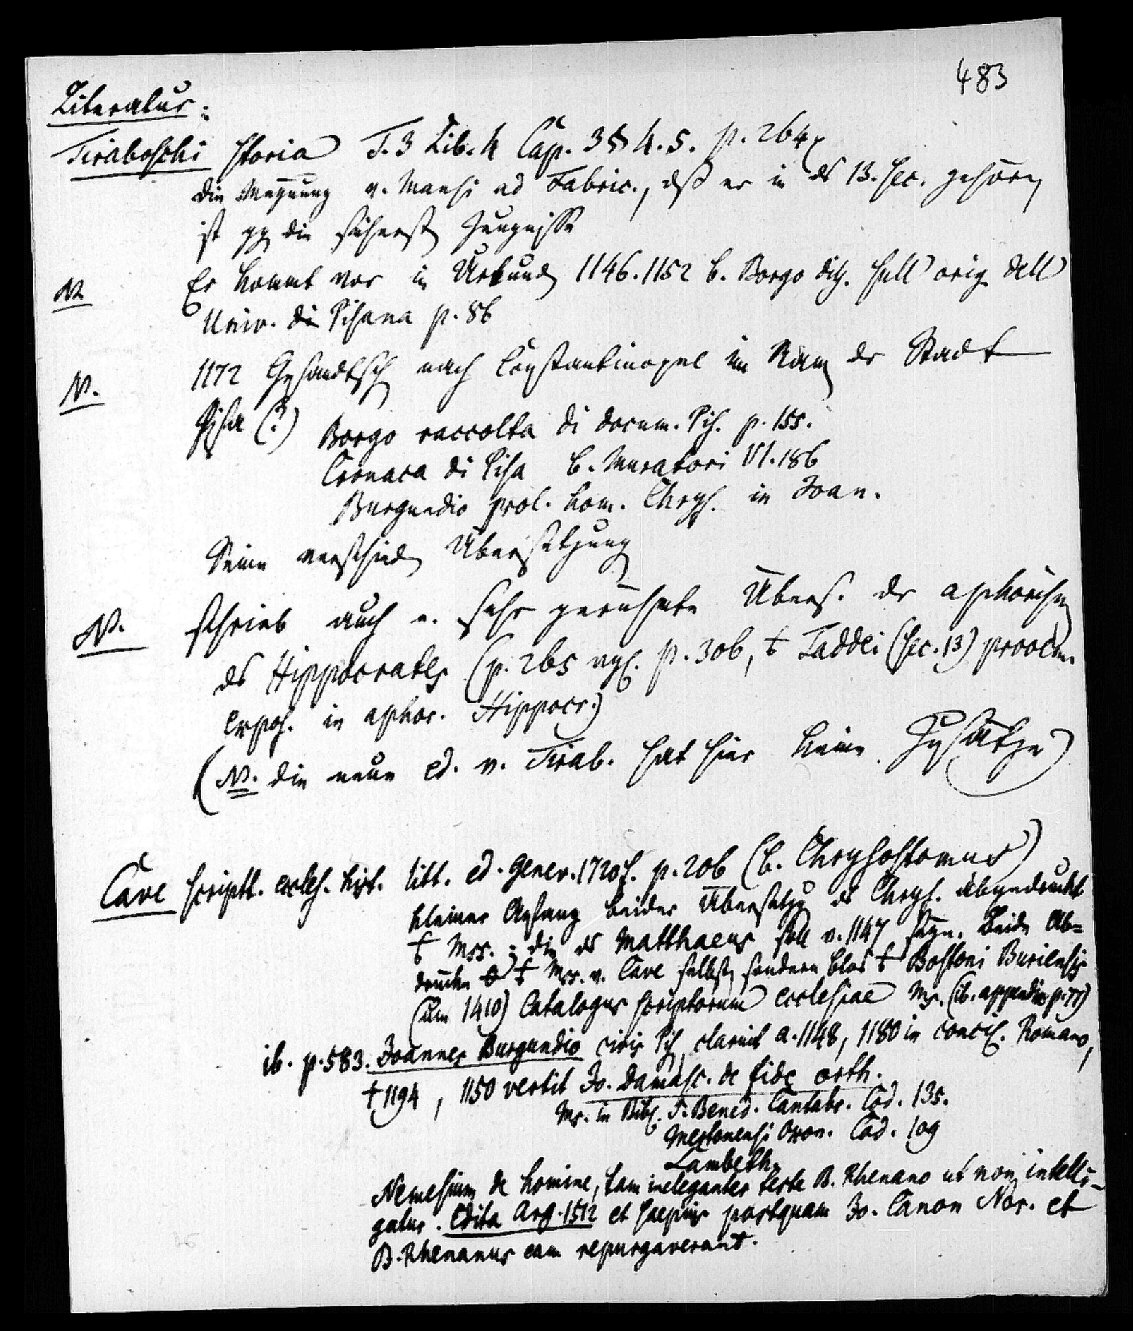 483
Literatur:
Tiraboschi storia T. 3 Lib. 4 Cap. 3 § 4. 5. p. 264
die Meynung v. Mansi ad Fabric., dß er in ds 13. sec. gehöre,
ist gg die sichersten Zeugnisse
N. Er kommt vor in Urkunden 1146. 1152 b. Borgo diss. sull' orig. dell'
Univ. di Pisana p. 86
N. 1172 Gesandtsch nach Constantinopel im Namen der Stadt
Pisa (?) Borgo raccolta di docum. Pis. p. 155.
Cronaca di Pisa b. Muratori VI. 186
Burgundio prol. hom. Chrys. in Joan.
Seine verschieden Übersetzung
N. schrieb auch e. sehr gerühmte Übers. der aphorismen
des Hippocrates (p. 265 vgl. p. 306, Taddei (sec. 13) prooem.
expos. in aphor. Hippocr.)
(N. die neue ed. v. Tirab. hat hier keine Zusätze)
Cave scriptt. eccles. hist. litt. ed. Genev. 1720 f. p. 206 (b. Chrysostomus)
kleiner Anfang beider Übersetzg ds Chrys. abgedruckt
Mss.; die ds Matthaeus soll v. 1147 seyn. Beide Ab=
drucke Mss. v. Cave selbst, sondern blos Bostoni Buriensis
(um 1410) Catalogus scriptorum ecclesiae Ms. (ib. appendix p.)
ib. p. 583. Joannes Burgundio civis Pis, claruit a. 1148, 1180 in concil. Romano,
† 1194, 1150 vertit Jo. Damasc. de fide orth.
Ms. in Bibl. S. Bened. Cantabr. Cod. 135.
Mertonensi Oxon. Cod. 109
Lambeth.
Nemesium de homine, tam ineleganter teste B. Rhenano ut non intelli-
gatur. Edita Arg. 1512 et saepius postquam Jo. Canon Nor. et
B. Rhenanus eam repurgaverant.